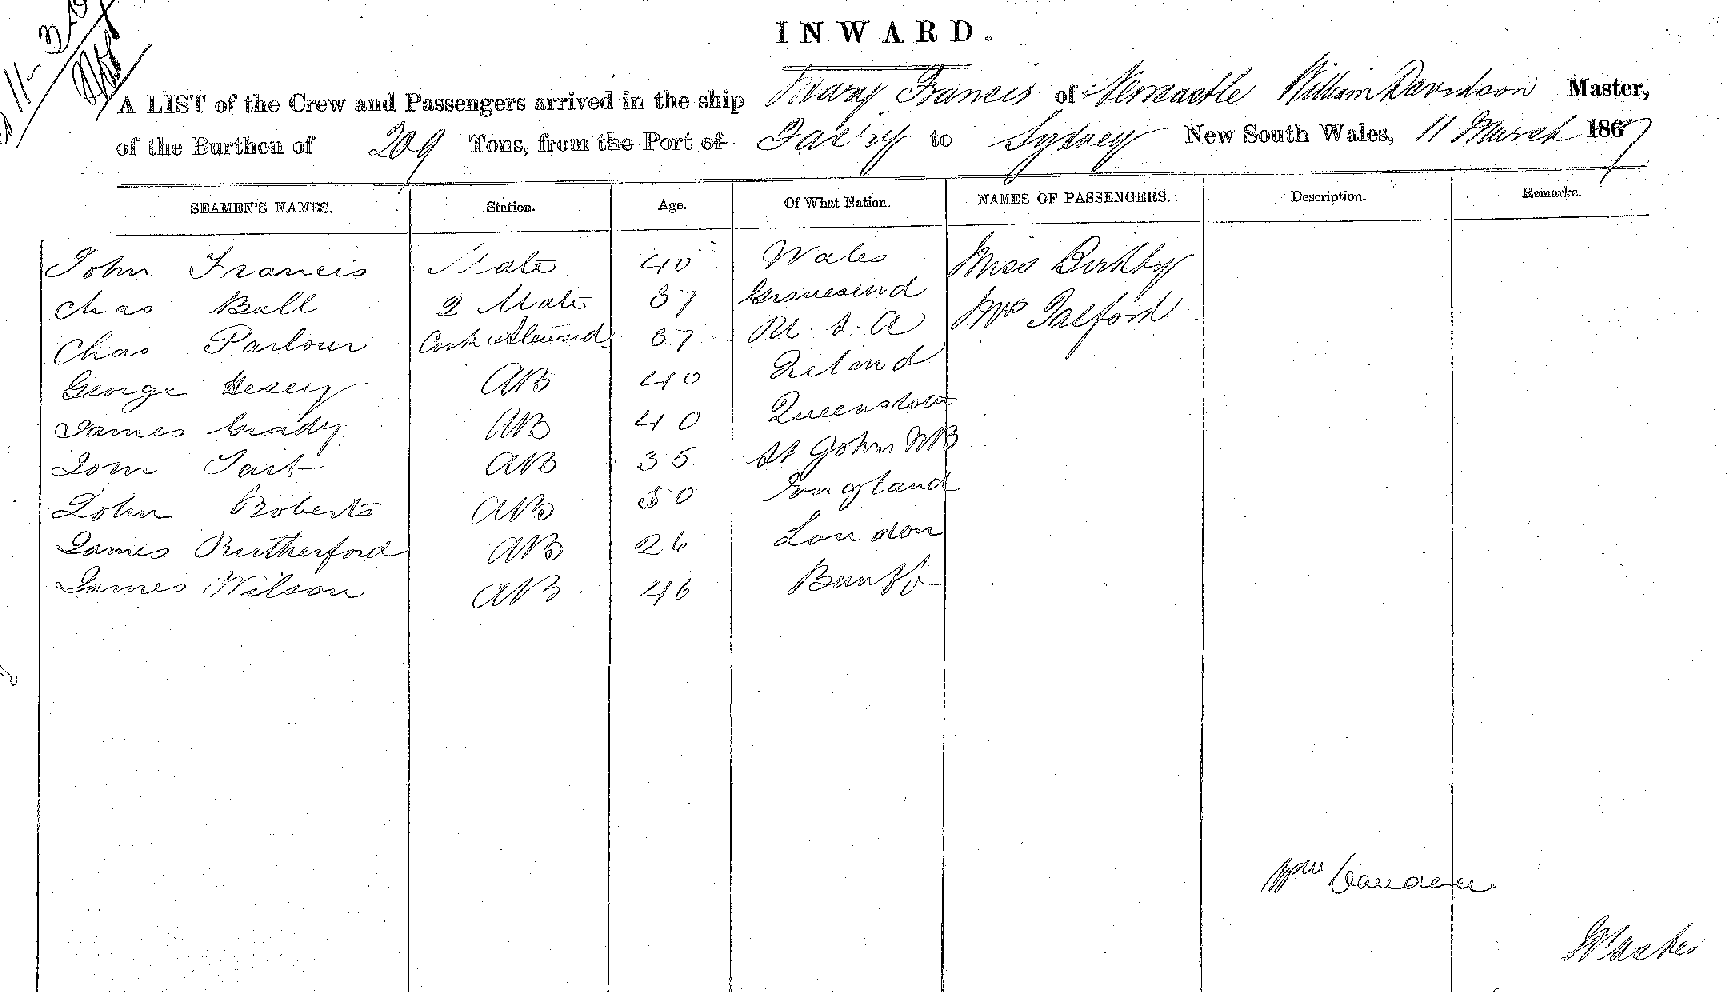 INWARD.
A LIST of the Crew and Passengers arrived in the ship Mary Francis of Newcastle William Davidson Master,
of the Burthen of 209 Tons, from the Port of to Sydney New South Wales, 11 March 1867
SEAMEN'S NAMES. Station. Age. Of What Nation. NAMES OF PASSENGERS. Description. Remarks.
John Francis Mate 40 Wales Miss Birkby
Chas Ball 2 Mate 37 Gravesend Mrs Talford
Chas Parlour Cook & Steward 37 U. S. A
George AB 40 Ireland
James Grady AB 40 Queenstown
Tom Tait AB 35 St John NB
John Roberts AB 30 England
James Rutherford AB 26 London
James Wilson AB 46 Banff
Wm
Master